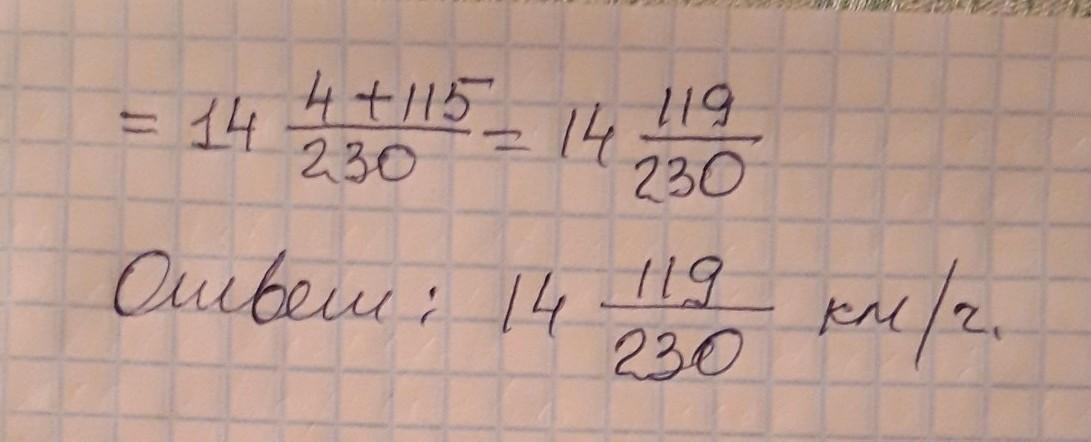 = 14 4+115/230 = 14 119/230
Ответ: 14 119/230 км/ч.